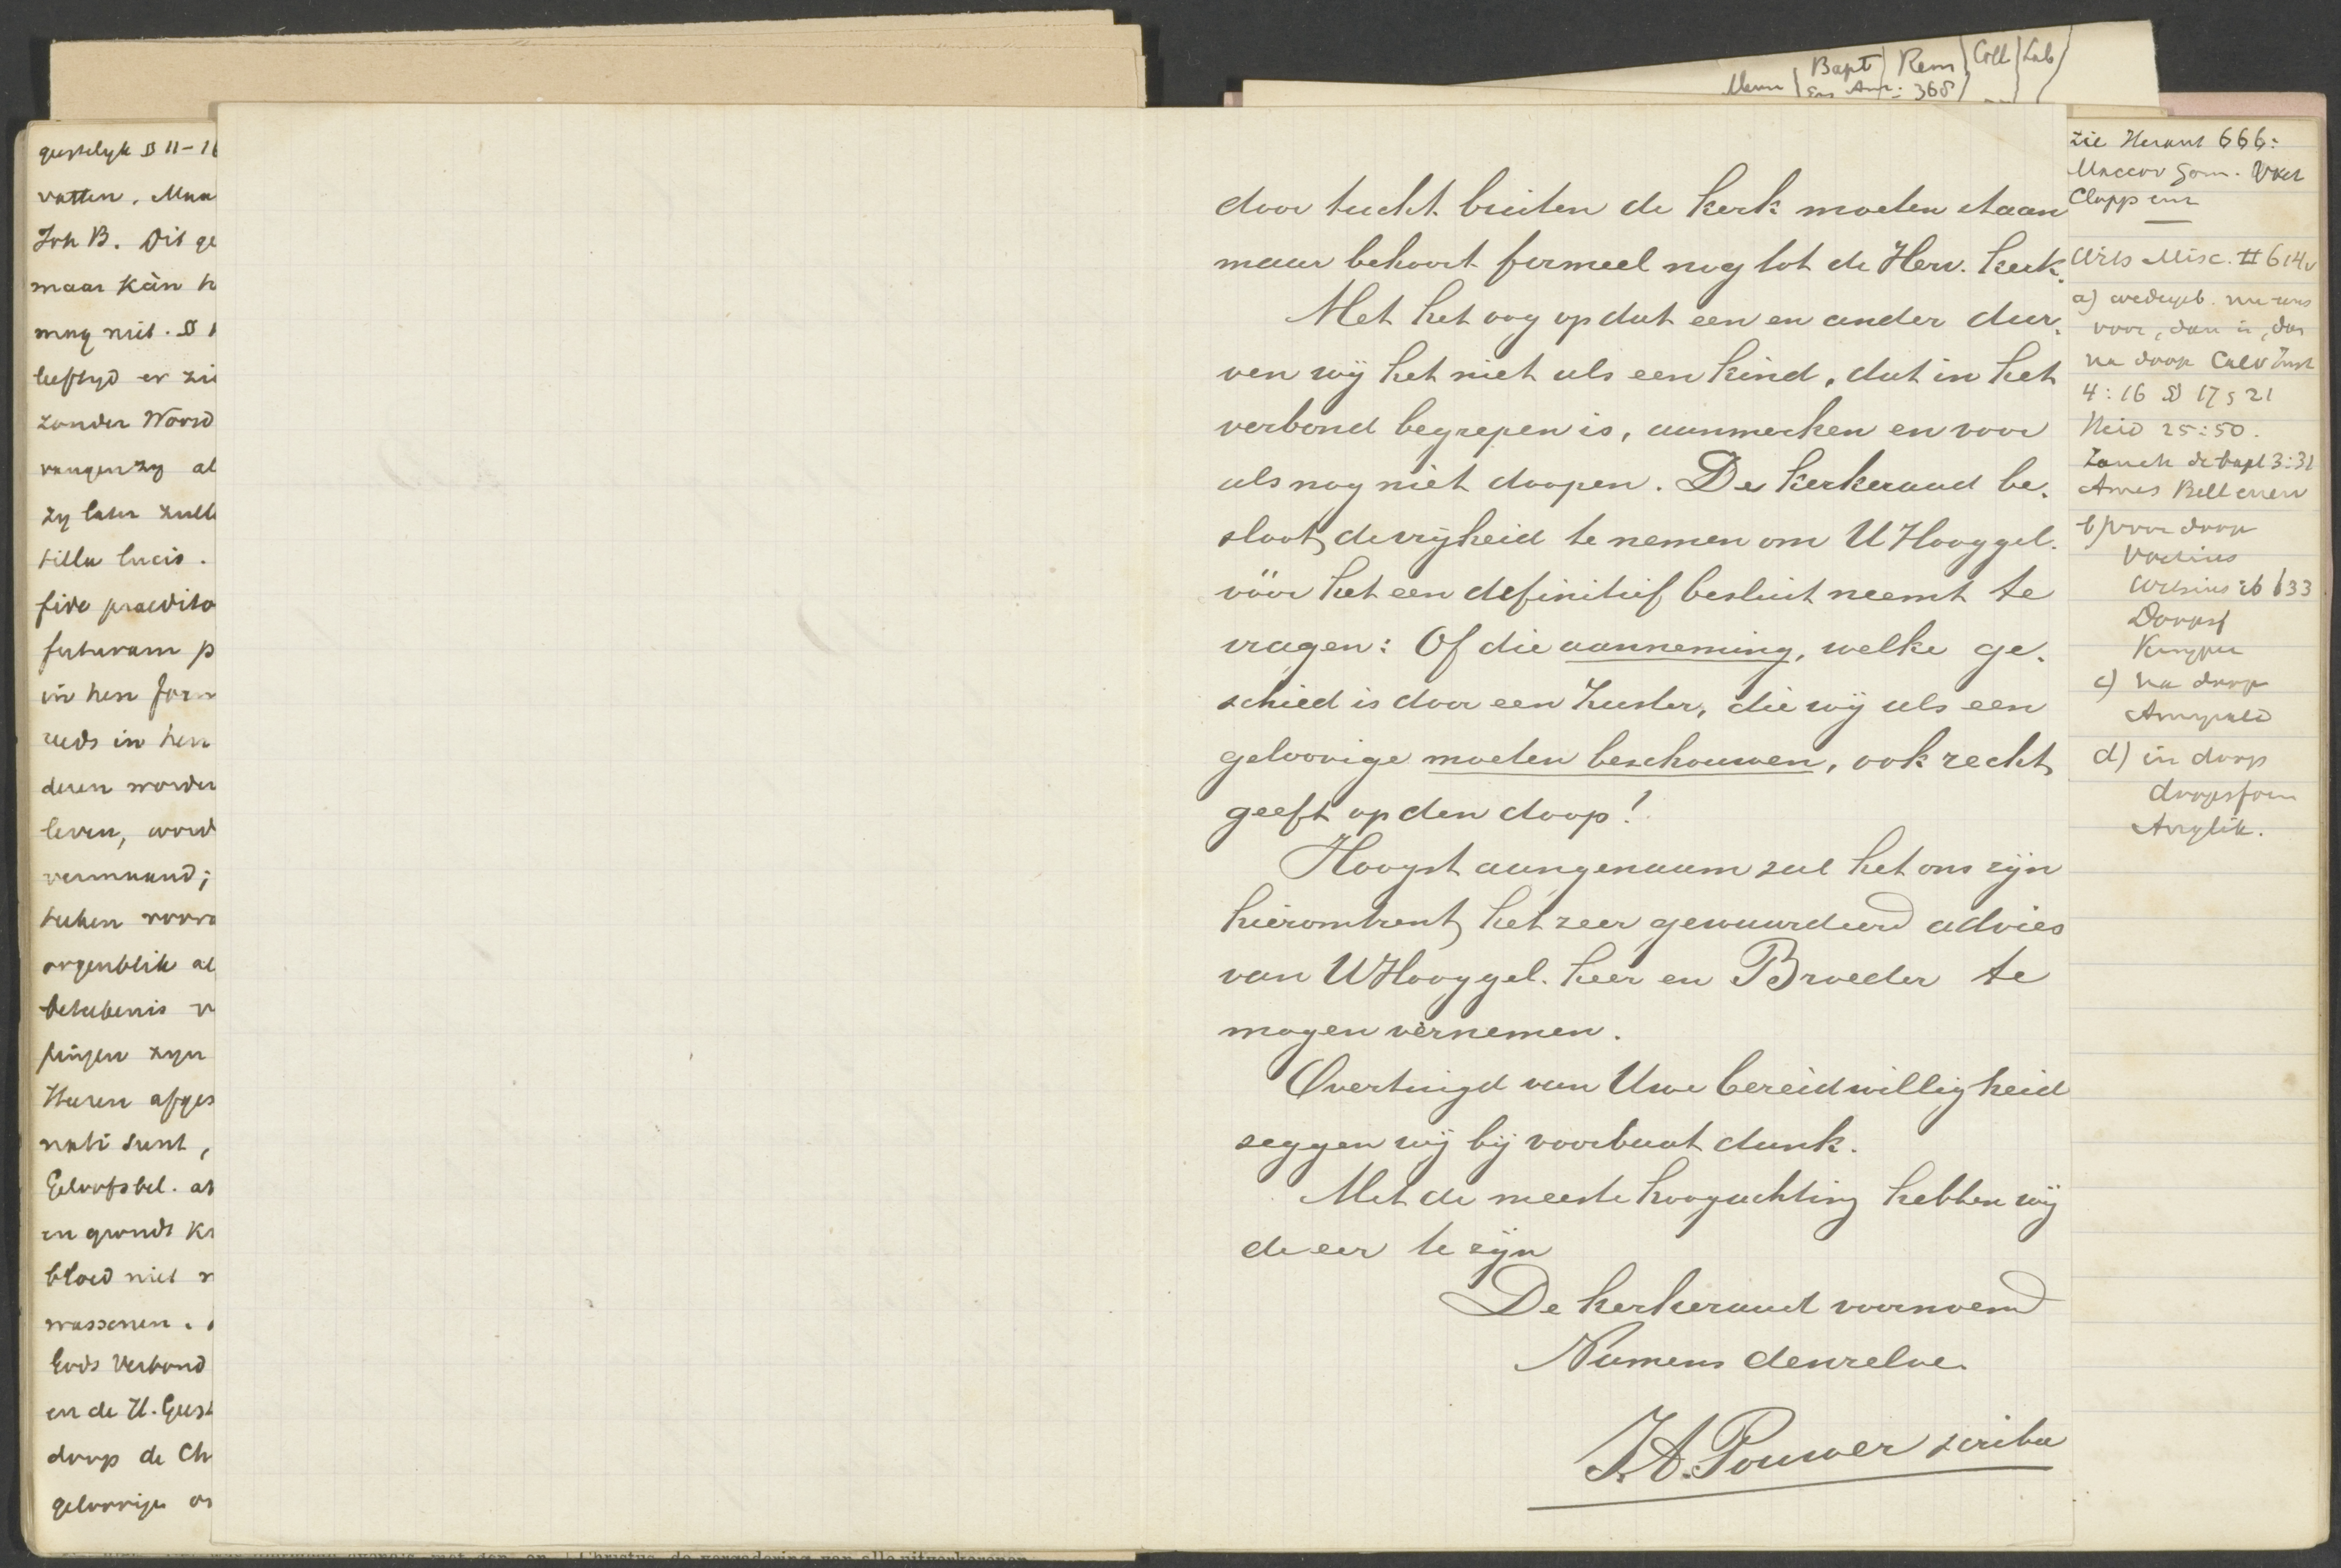 Menn Bapt Rem Coll Lab
En Ann: 368
geestelyk § 11-16
vatten. Maa
Joh B. Dit ge
maar kàn h
mag niet. §
leeftyd er zi
zonder Woord
vangen zy al
zy later zull
tilla lucis.
fide praedito
futuram p
in hen form
reeds in hen
deren worden
leven, word
vermaand;
teeken voora
oogenblik al
beteekenis v
pingen zyn
Heeren afges
nati sunt,
Geloofsbel. at
en gronds Kr
bloed niet
wassenen.
Gods Verbond
en de H. Geest
doop de Ch
geloovige
door tucht buiten de kerk moeten staan
maar behoort formeel nog tot de Herv. kerk.
Met het oog op dat een en ander dur-
ven wij het niet als een kind, dat in het
verbond begrepen is, aanmerken en voor
als nog niet doopen. De kerkeraad be-
sloot de vrijheid te nemen om U Hooggel.
vóór het een definitief besluit neemt te
vragen: Of die aanneming, welke ge-
schied is door een Zuster, die wij als een
geloovige moeten beschouwen, ook recht
geeft op den doop!
Hoogst aangenaam zal het ons zijn
hieromtrent het zeer gewaardeerd advies
van U Hooggel. heer en Broeder te
mogen vernemen.
Overtuigd van Uwe bereidwilligheid
zeggen wij bij voorbaat dank.
Met de meeste hoogachting hebben wij
de eer te zijn
De kerkeraad voornoemd
Namens denzelve.
J.A. Pouwer scriba
zie Heraut 666:
Maccov Gom. Voet
Cloppenb
Wits Misc. II 614v
a) wedergeb. nu eens
voor, dan in, dan
na doop Calv Inst
4:16 § 17, 21
Heid 25:50.
Zanch de bapt 3:31
Ames Bell enerv
b) voor doop
Voetius
Witsius ib 633
Kuyper
c) na doop
Amyrald
d) in doop
doopsform
Anglik.
Christus de vergadering van alle uitverkorenen